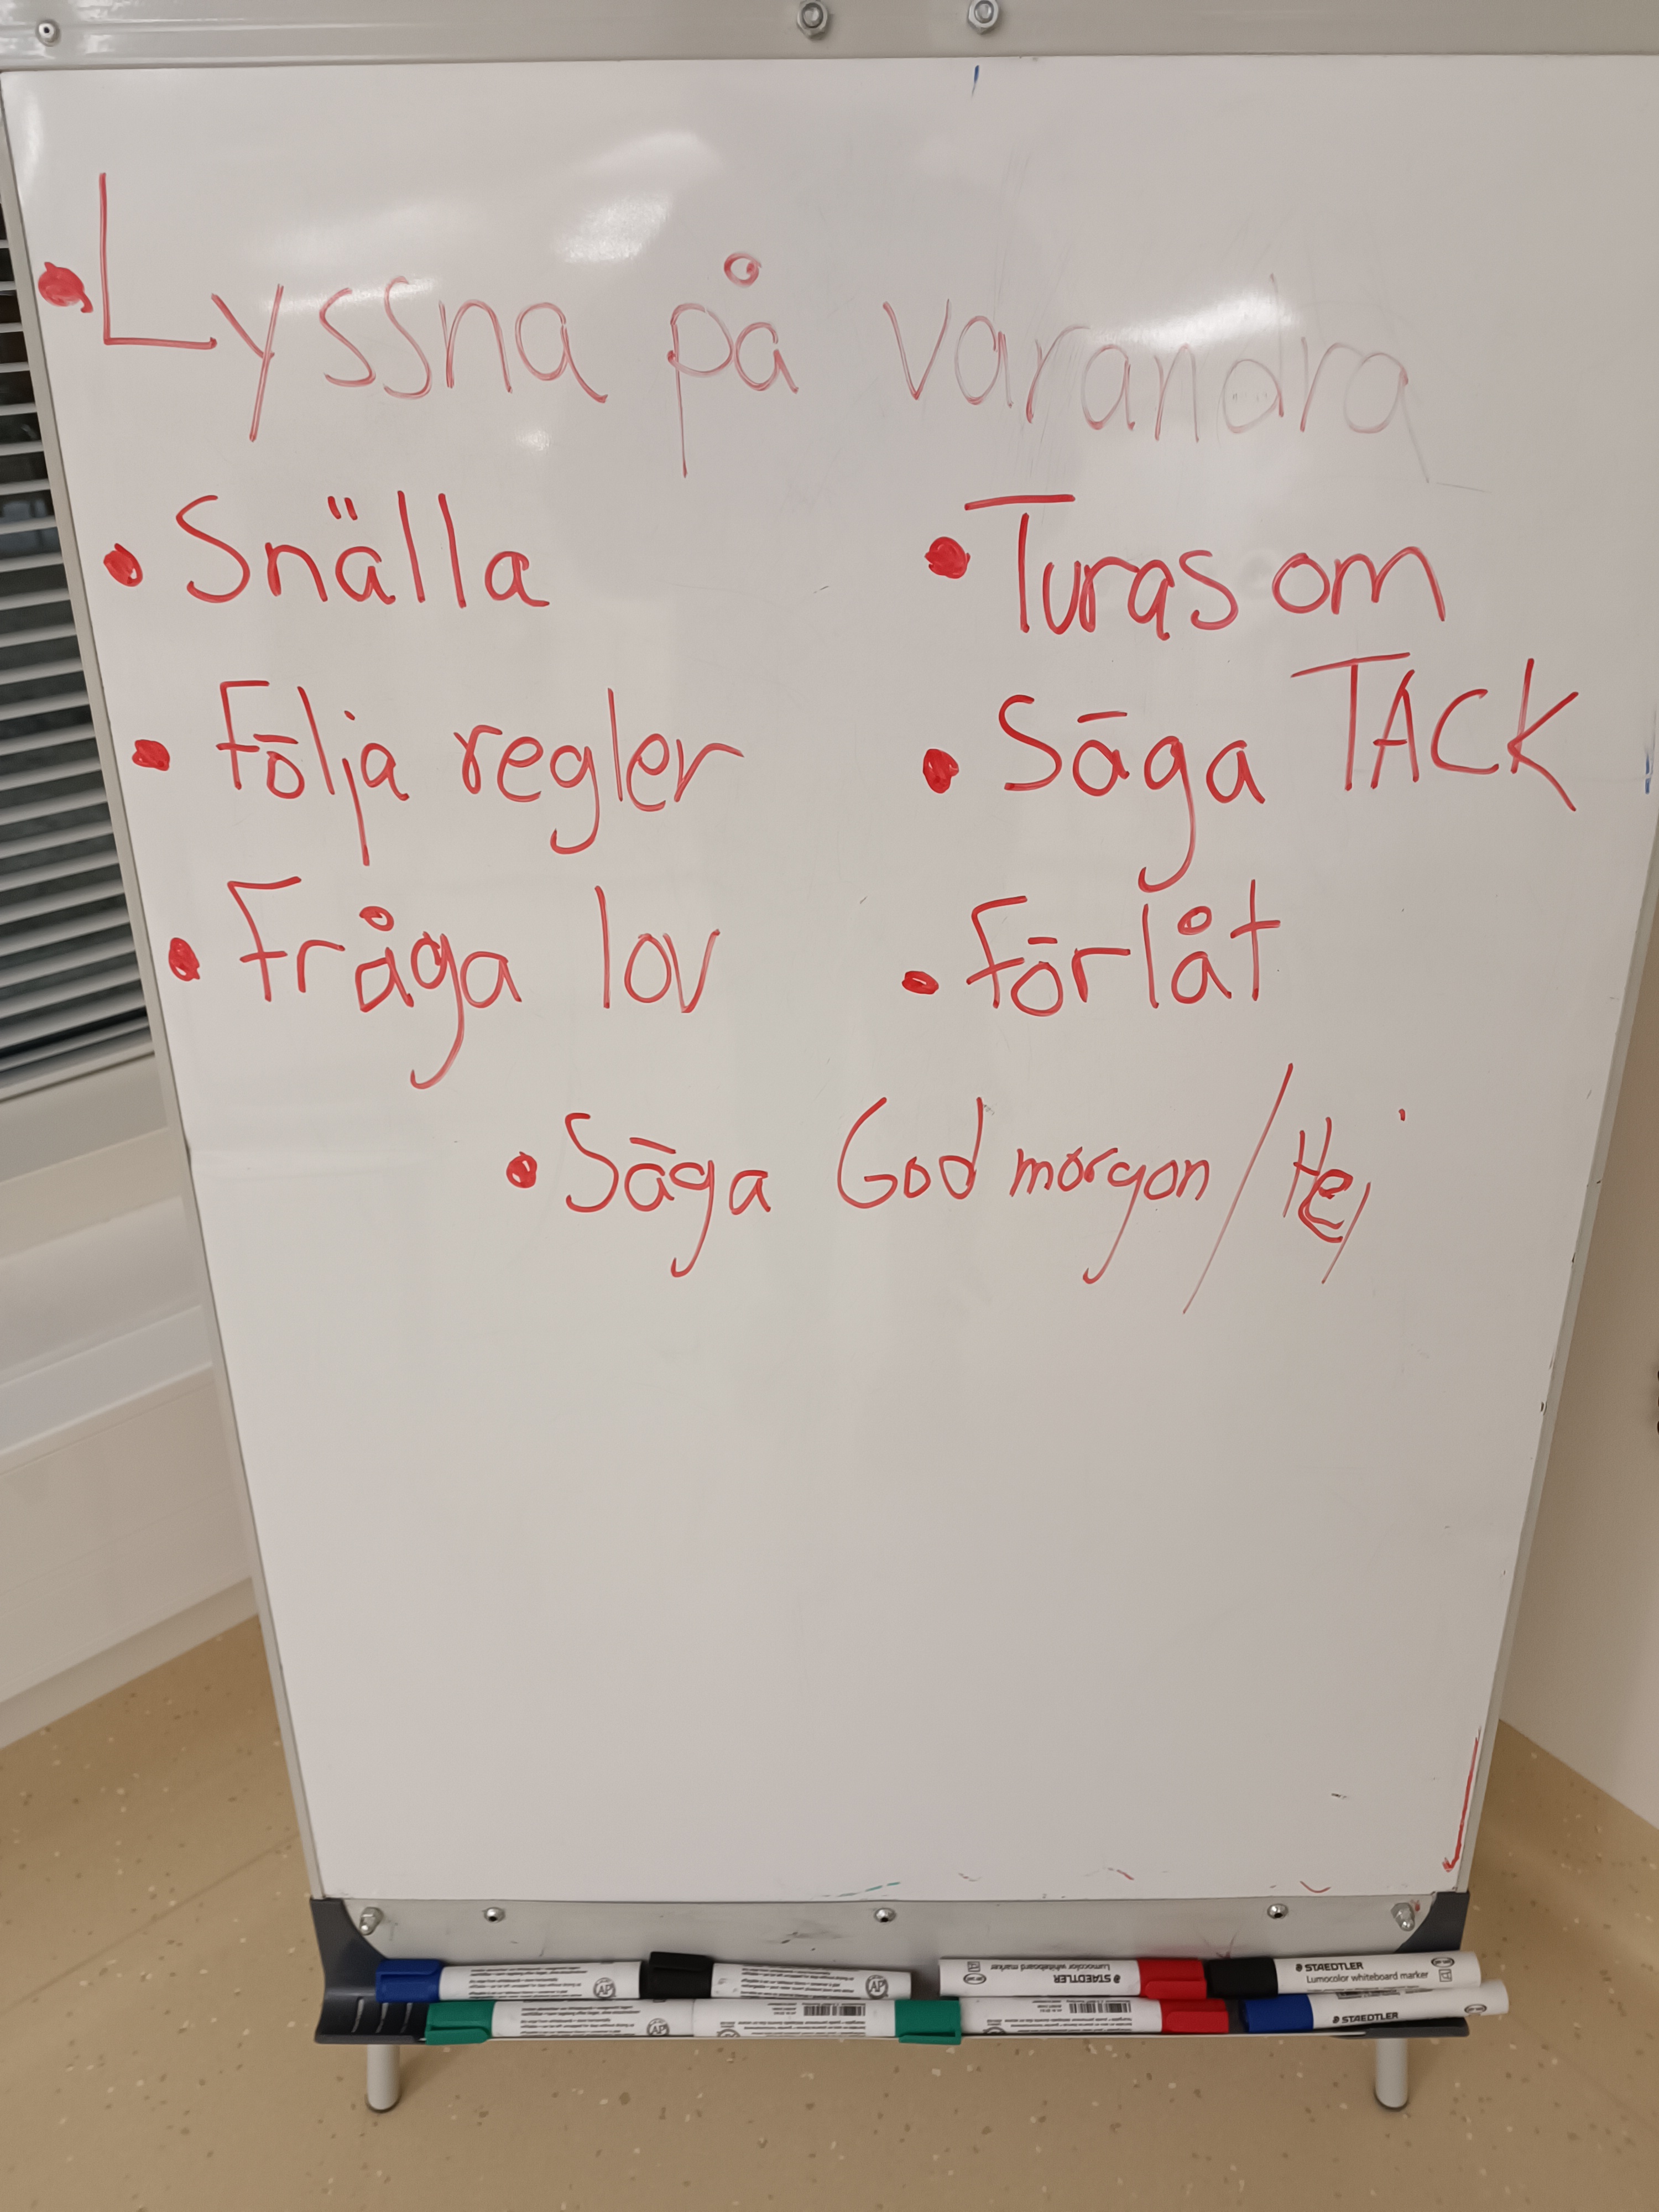 • Lyssna på varandra
• Snälla
• Turas om
• Följa regler
• Säga TACK
• Fråga lov
• Förlåt
• Säga God morgon / Hej
STAEDTLER
Lumocolor whiteboard marker
STAEDTLER
Lumocolor whiteboard marker
STAEDTLER
AP
AP
AP